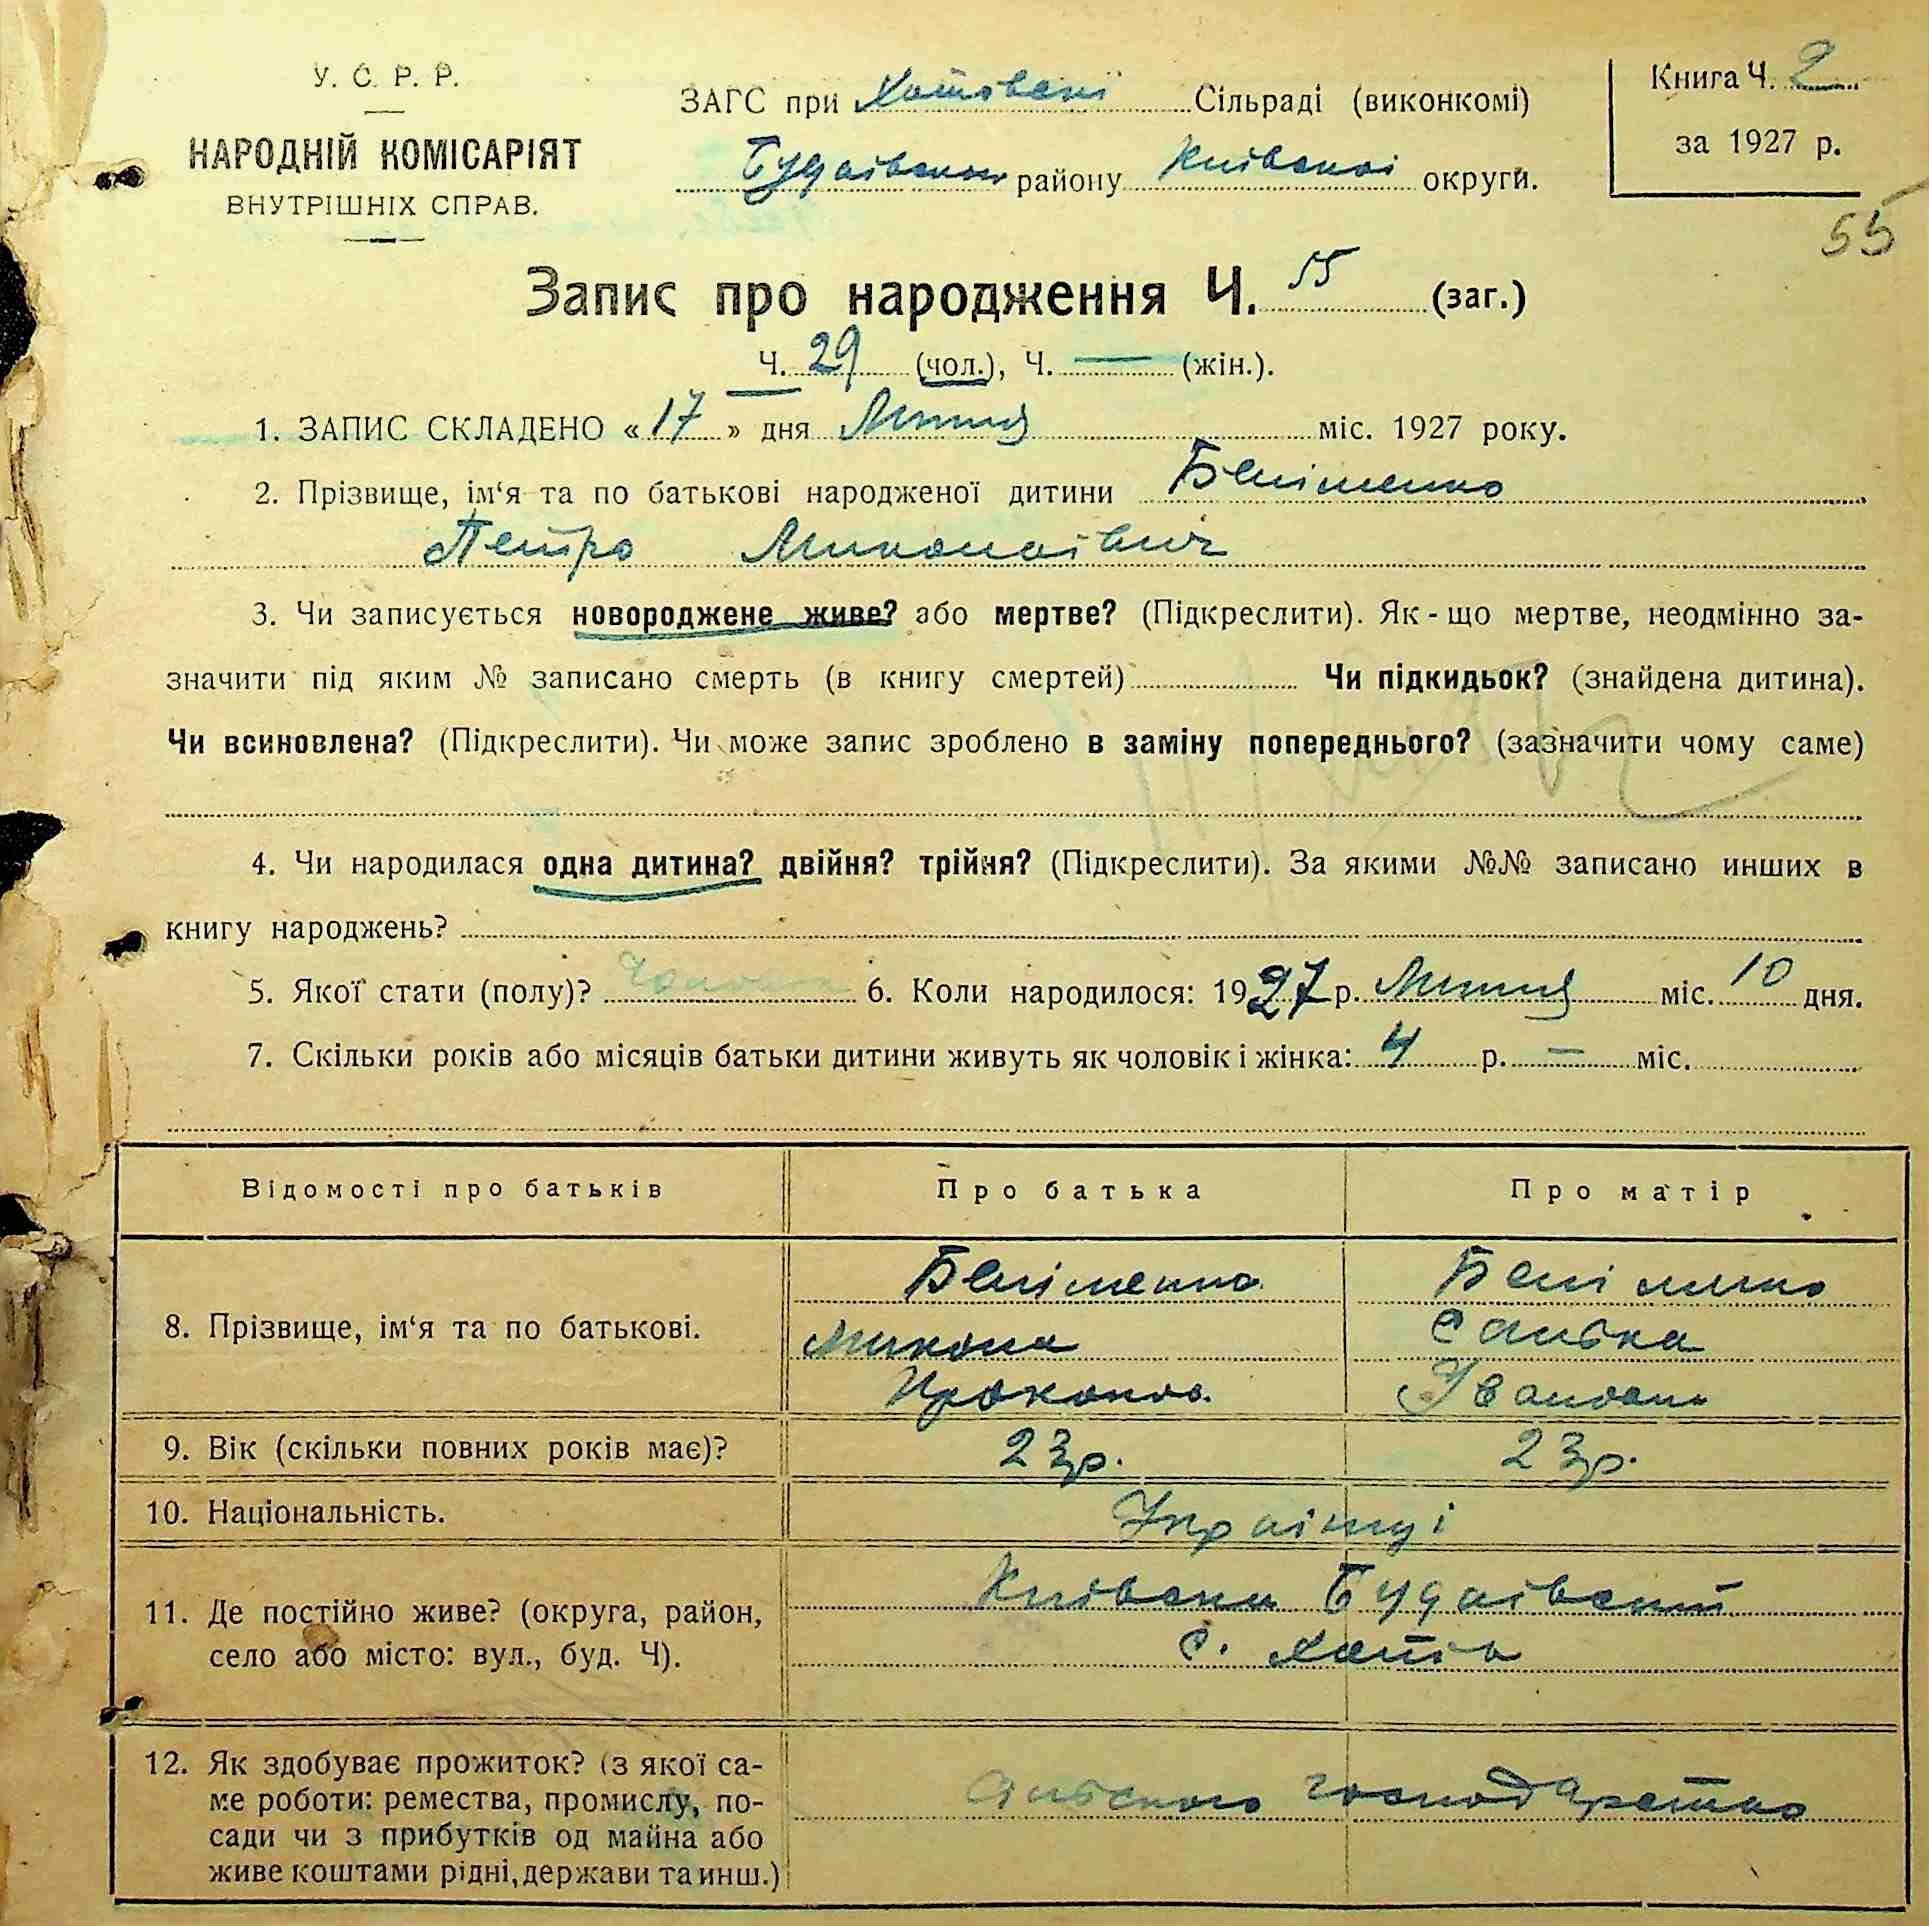 У. С. Р. Р.
НАРОДНІЙ КОМІСАРІЯТ
ВНУТРІШНІХ СПРАВ.
ЗАГС при Хотовскі Сільраді (виконкомі)
Будаівському району Київскої округи.
Книга Ч. 2
за 1927 р.
55
Запис про народження Ч. 55 (заг.)
Ч. 29 (чол.), Ч. — (жін.).
1. ЗАПИС СКЛАДЕНО « 17 » дня Липня міс. 1927 року.
2. Прізвище, ім‘я та по батькові народженої дитини
Петро Миколаівич
3. Чи записується новороджене живе? або мертве? (Підкреслити). Як - що мертве, неодмінно за-
значити під яким № записано смерть (в книгу смертей) Чи підкидьок? (знайдена дитина).
Чи всиновлена? (Підкреслити). Чи може запис зроблено в заміну попереднього? (зазначити чому саме)
4. Чи народилася одна дитина? двійня? трійня? (Підкреслити). За якими №№ записано инших в
книгу народжень?
5. Якої стати (полу)? 6. Коли народилося: 1927 р. Липня міс. 10 дня.
7. Скільки років або місяців батьки дитини живуть як чоловік і жінка: 4 р. — міс.
Відомості про батьків Про батька Про матір
8. Прізвище, ім‘я та по батькові.
Микола
Проков.
9. Вік (скільки повних років має)? 23 р. 23 р.
10. Національність. Українці
11. Де постійно живе? (округа, район,
село або місто: вул., буд. Ч).
Будаівский
с. Хотів
12. Як здобуває прожиток? (з якої са-
ме роботи: ремества, промислу, по-
сади чи з прибутків од майна або
живе коштами рідні, держави та инш.)